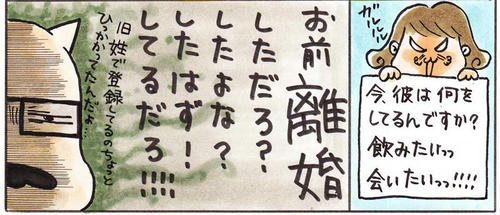 ガルルル
今、彼は何を
してるんですか?
飲みたいっっ
会いたいっっ!!!!
お前離婚
しただろ?
したよな?
したはず!
してるだろ!!!!
旧姓で登録してるのちょっと
ひっかかってたんだよ…